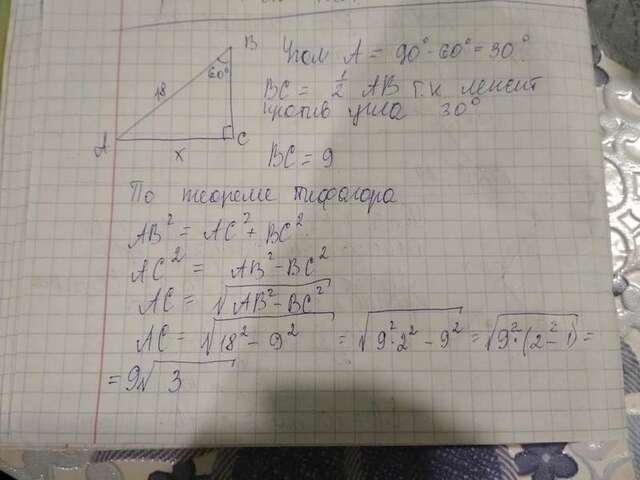 B
60°
18
A
C
x
Угол A = 90° - 60° = 30°
BC = 1/2 AB т.к лежит
против угла 30°
BC = 9
По теореме пифагора
AB² = AC² + BC²
AC² = AB² - BC²
AC = √(AB² - BC²)
AC = √(18² - 9²) = √(9²·2² - 9²) = √(9²·(2² - 1)) =
= 9√3